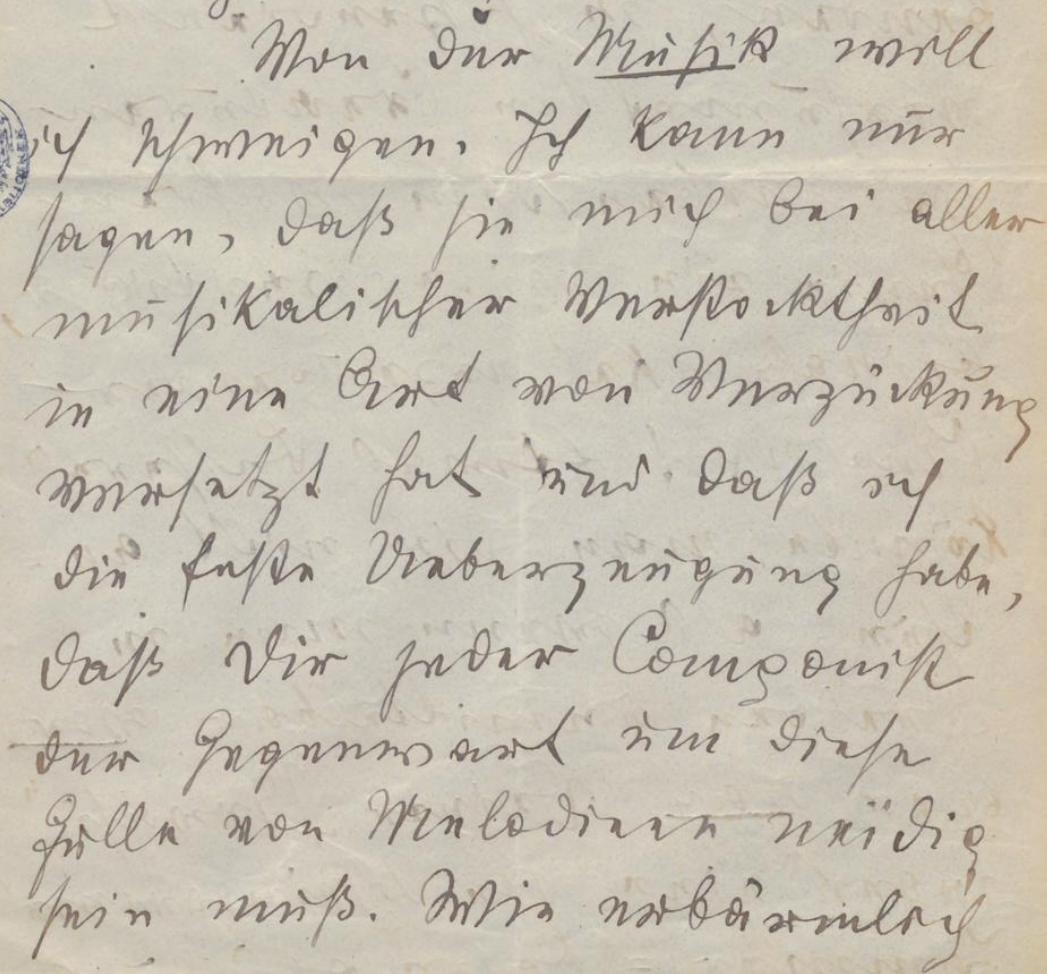 Von der Musik will
ich schweigen. Ich kann nur
sagen, daß sie mich bei aller
musikalischer Verstocktheit
in eine Art von Verzückung
versetzt hat und daß ich
die feste Ueberzeugung habe,
daß Dir jeder Componist
der Gegenwart um diese
Fülle von Melodieen neidig
sein muß. Wie erbärmlich